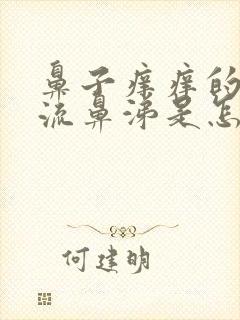 鼻子痒痒的
流鼻涕是怎
何建明